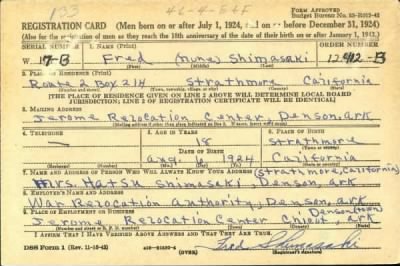 133 42-4-54F
FORM APPROVED
REGISTRATION CARD (Men born on or after July 1, 1924, and on or before December 31, 1924)
(Also for the registration of men as they reach the 18th anniversary of the date of their birth on or after January 1, 1943.)
SERIAL NUMBER 1. NAME (Print) ORDER NUMBER
W 17-B Fred (none) Shimasaki 12412-B
(First) (Middle) (Last)
2. PLACE OF RESIDENCE (Print)
Route Box 214 Strathmore California
(THE PLACE OF RESIDENCE GIVEN ON LINE 2 ABOVE WILL DETERMINE LOCAL BOARD
JURISDICTION; LINE 2 OF REGISTRATION CERTIFICATE WILL BE IDENTICAL)
3. MAILING ADDRESS
Jerome Relocation Center, Denson, Ark
4. TELEPHONE 5. AGE IN YEARS 6. PLACE OF BIRTH
18 Strathmore
DATE OF BIRTH
Aug. 6 1924 California
7. NAME AND ADDRESS OF PERSON WHO WILL ALWAYS KNOW YOUR ADDRESS (Strathmore, California)
Mrs. Hatsu Shimasaki, Denson, Ark
8. EMPLOYER'S NAME AND ADDRESS
War Relocation Authority, Denson, Ark
9. PLACE OF EMPLOYMENT OR BUSINESS Denson
Jerome Relocation Center Chicot, Ark
I AFFIRM THAT I HAVE VERIFIED ABOVE ANSWERS AND THAT THEY ARE TRUE.
DSS Form 1 (Rev. 11-16-42) (OVER) Fred Shimasaki